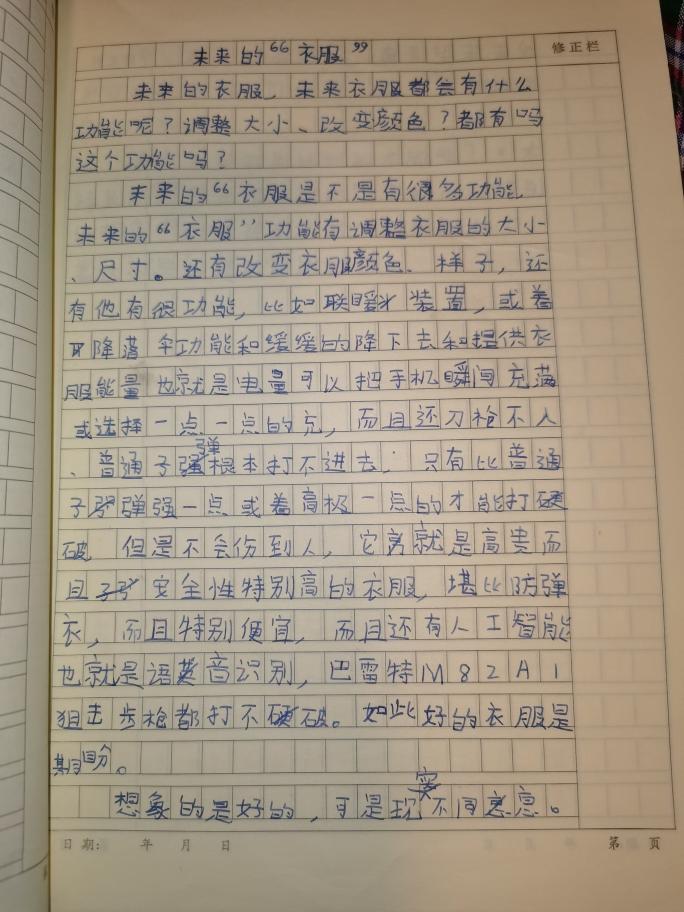 未来的“衣服”
修正栏
未来的衣服，未来衣服都会有什么
功能呢？调整大小、改变颜色？都有吗
这个功能吗？
未来的“衣服是不是有很多功能
未来的“衣服”功能有调整衣服的大小
、尺寸。还有改变衣服颜色、样子，还
有他有很功能，比如联暖 装置，或着
降落伞功能和缓缓的降下去和提供衣
服能量 也就是电量可以把手机瞬间充满
或选择一点一点的充，而且还刀枪不人
、普通子弹根本打不进去；只有比普通
子弹强一点或着高极一点的才能打硬
破 但是不会伤到人，它就是高贵而
且安全性特别高的衣服，堪比防弹
衣，而且特别便宜，而且还有人工智能
也就是语音识别，巴雷特M82A1
狙击步枪都打不硬破。如此好的衣服是
想象的是好的，可是现实不同意息。
日期： 年 月 日
第 页